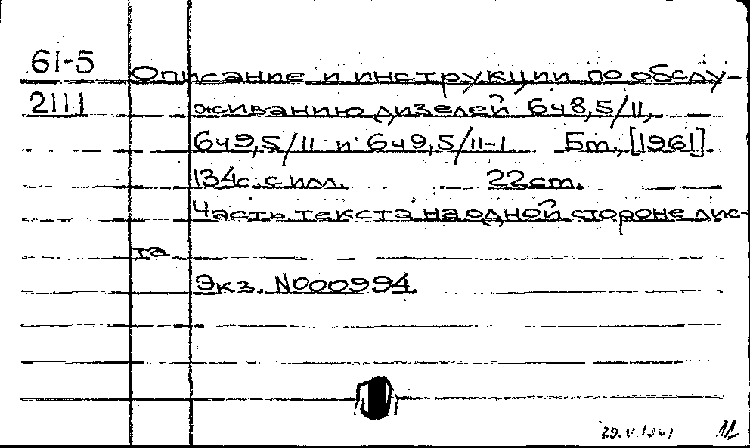 61-5
Описание и инструкции по обслу-
2111
живанию дизелей 6ч8,5/11,
6ч9,5/11 и 6ч9,5/11-1 Б.т., [1961]
134с. с илл. 22см.
Часть текста на одной стороне лис-
та
Экз. N000994.